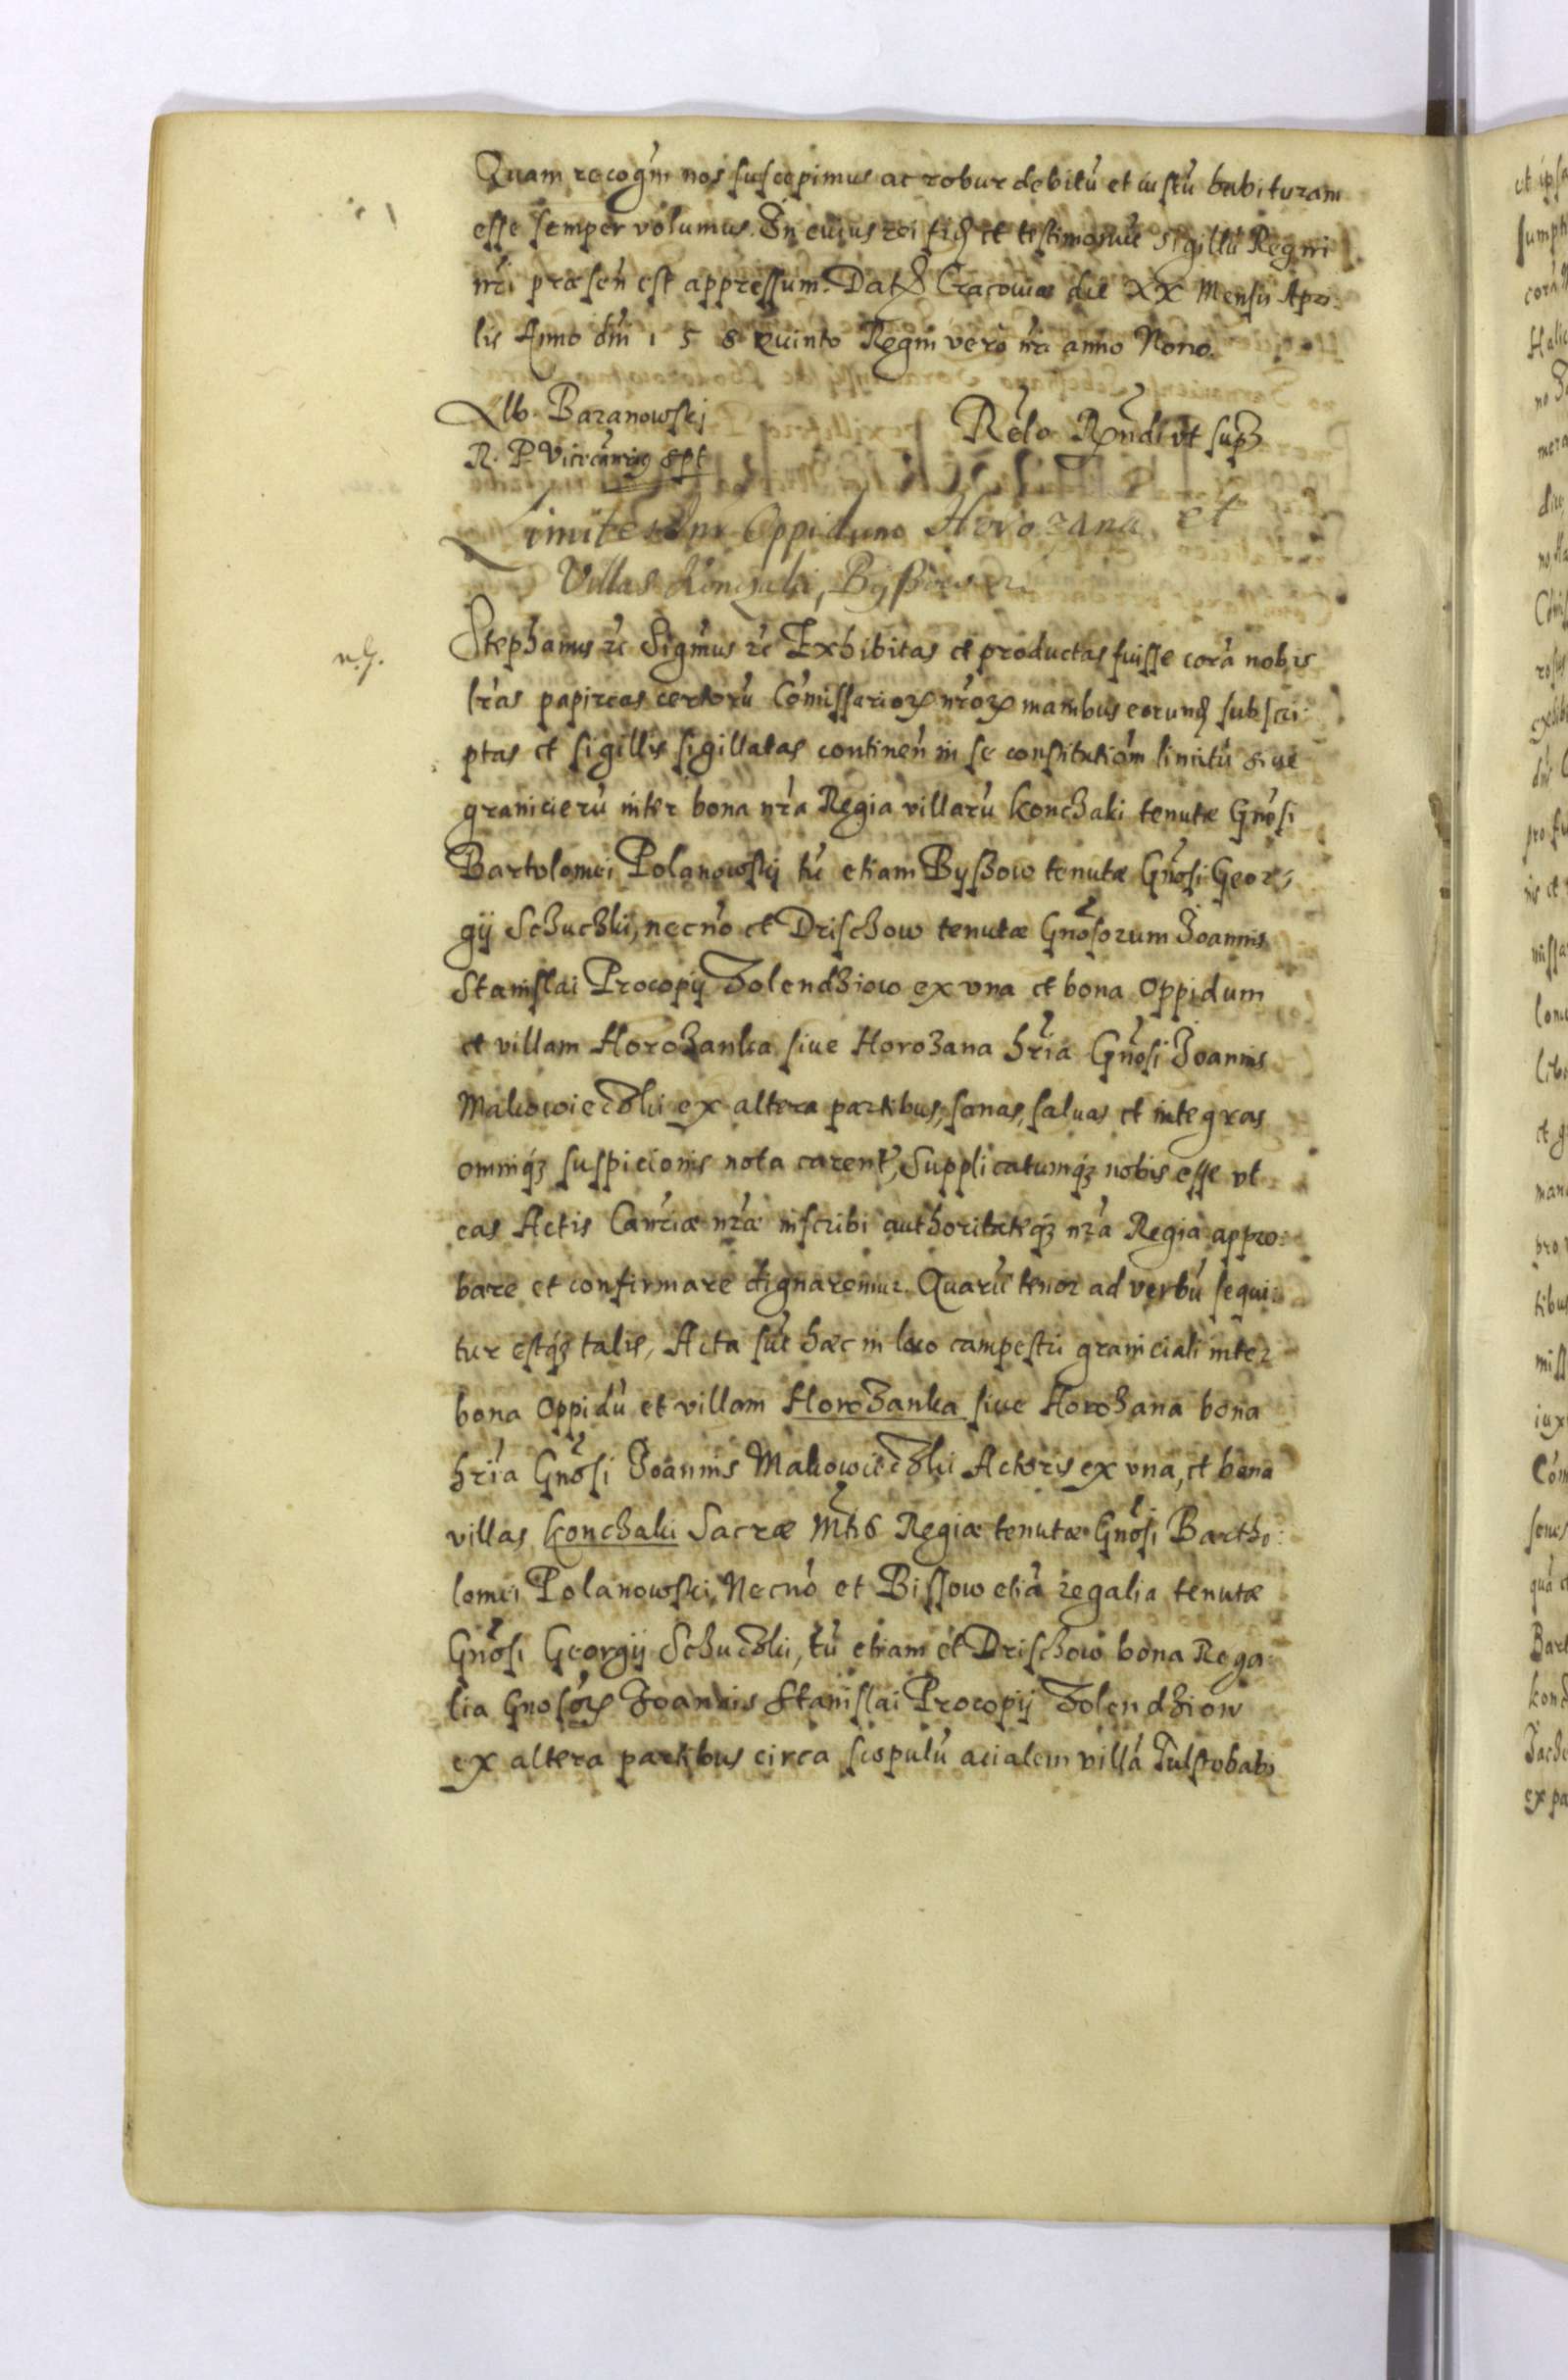 Quam recogm̃ nos suscepimus ac robur debitũ et iustũ habituram
esse semper volumus. In cuius rei fid et testimoniũ Sigillũ Regni
nr̃i præsen̄ est appressum. Dat Cracoviæ die XX Mensis Apri:
lis Anno dm̃i 1 5 8 quinto Regni vero nr̃i anno Nono.
Alb. Baranowskj
R. P. Vicecãn̄rius spt
Relo Rn̄di ut sup
Limites Inter Oppidum Horozana et
Villas Konczaki, Byszow etz
n. h.
Stephanus etc Sigm̃us etc Exhibitas et productas fuisse corã nobis
lr̃as papireas certorũ Com̃issarior nr̃or manibus eorund subscri:
ptas et sigillis sigillatas continen̄ in se constitutiom̃ limitũ siue
granicierũ inter bona nr̃a Regia villarũ Konchaki tenutæ Gn̄osi
Bartolomei Polanowskij tũ etiam Byszow tenutæ Gn̄osi Geor:
gij Schuchki, necnõ et Drischow tenutæ Gn̄osorum Joannis
Stanislai Procopij Zolendziow ex vna et bona Oppidum
et villam Horozanka siue Horozana hr̃ia Gn̄osi Joannis
Makowieczki ex altera partibus, sanas, saluas et integras
omniq3 suspicionis nota caren̄t, Supplicatumq3 nobis esse vt
eas Actis Can̄riæ nr̃æ inscribi authoritateq3 nr̃a Regia appro:
bare et confirmare dignaremur. Quarũ tenor ad verbũ sequi:
tur estq3 talis, Acta sũt hæc in loco campestri graniciali inter
bona Oppidũ et villam Horozanka siue Horozana bona
hr̃ia Gn̄osi Joannis Makowieczki Actoris ex vna, et bona
villas Konchaki Sacræ Mt̃is Regiæ tenutæ Gn̄osi Bartho:
lomei Polanowski, Necnõ et Bissow etiã regalia tenutæ
Gn̄osi Georgij Schuczki, tũ etiam et Drischow bona Rega:
lia Gnosor Joannis Stanislai Procopij Zolendziow
ex altera partibus circa scopulũ acialem villã Tulstobabi